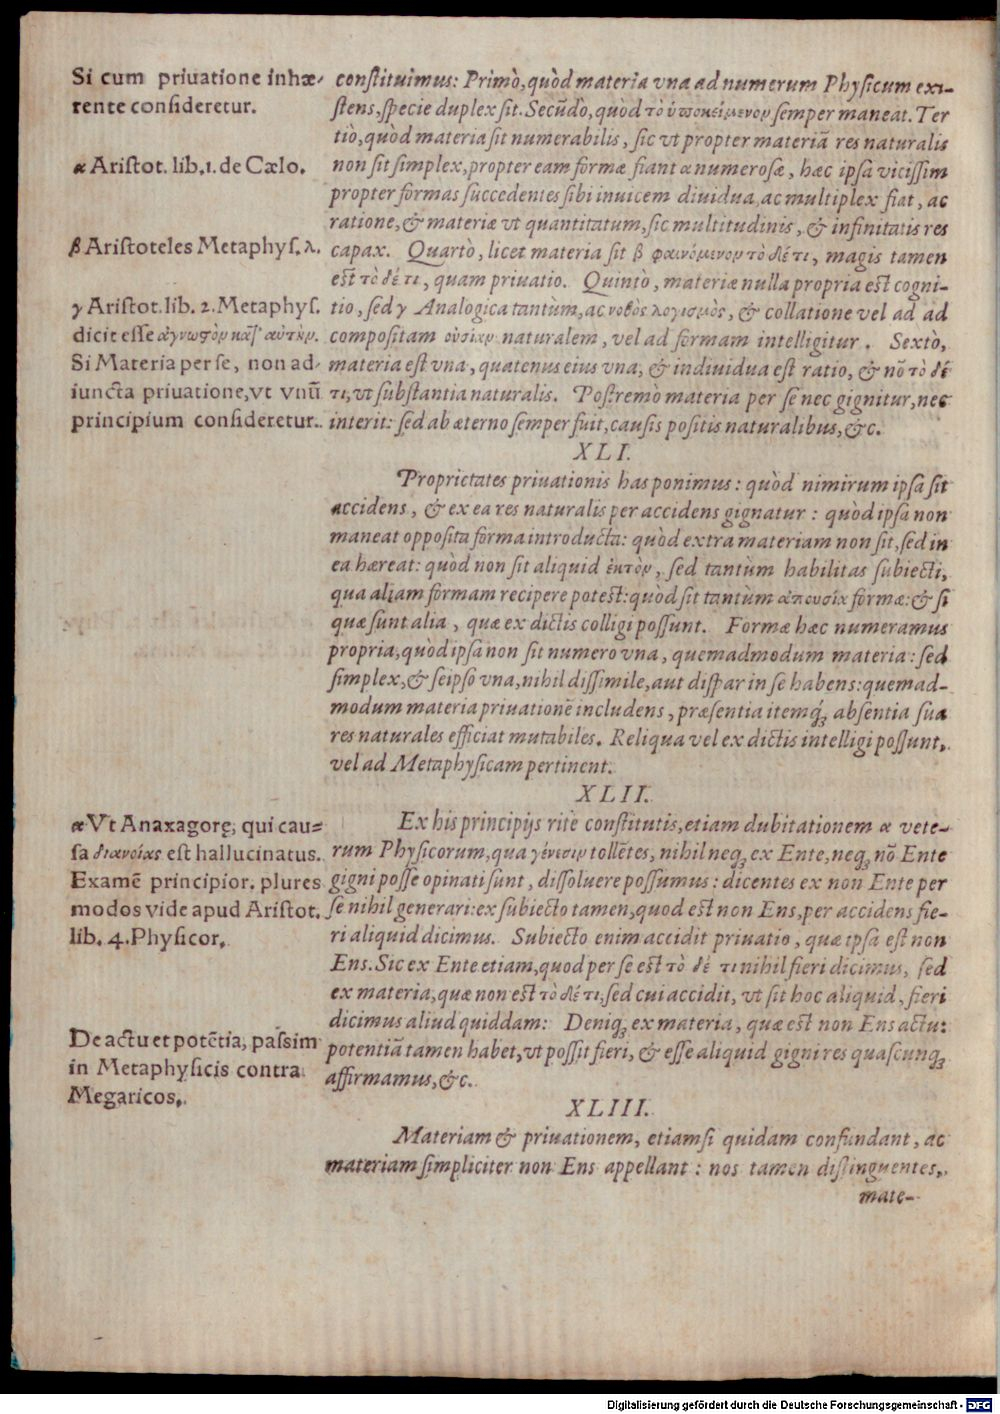 Si cum priuatione inhæ-
rente consideretur.
α Aristot. lib. 1. de Cælo.
β Aristoteles Metaphys. λ.
γ Aristot. lib. 2. Metaphys.
dicit esse ἄγνωστὸν καθ' αὑτὴν.
Si Materia per se, non ad-
iuncta priuatione, vt vnũ
principium consideretur.
constituimus: Primò, quòd materia vna ad numerum Physicum exi-
stens, specie duplex sit. Secũdò, quòd τὸ ὑποκείμενον semper maneat. Ter
tiò, quòd materia sit numerabilis, sic vt propter materiã res naturalis
non sit simplex, propter eam formæ fiant α numerosæ, hæc ipsa vicissim
propter formas succedentes sibi inuicem diuidua, ac multiplex fiat, ac
ratione, & materiæ vt quantitatum, sic multitudinis, & infinitatis res
capax. Quartò, licet materia sit β φαινόμενον τὸ δέ τι, magis tamen
est τὸ δέ τι, quam priuatio. Quintò, materiæ nulla propria est cogni-
tio, sed γ Analogica tantùm, ac νοθὸς λογισμὸς, & collatione vel ad ad
compositam οὐσίαν naturalem, vel ad formam intelligitur. Sextò,
materia est vna, quatenus eius vna, & indiuidua est ratio, & nõ τὸ δέ
τι, vt substantia naturalis. Postremò materia per se nec gignitur, nec
interit: sed ab æterno semper fuit, causis positis naturalibus, &c.
XLI.
Proprietates priuationis has ponimus: quòd nimirum ipsa sit
accidens, & ex ea res naturalis per accidens gignatur: quòd ipsa non
maneat opposita forma introducta: quòd extra materiam non sit, sed in
ea hæreat: quòd non sit aliquid ἑκτὸν, sed tantùm habilitas subiecti,
qua aliam formam recipere potest: quòd sit tantùm ἀπουσία formæ: & si
quæ sunt alia, quæ ex dictis colligi possunt. Formæ hæc numeramus
propria, quòd ipsa non sit numero vna, quemadmodum materia: sed
simplex, & seipso vna, nihil dissimile, aut dispar in se habens: quemad-
modum materia priuationẽ includens, præsentia itemq́; absentia sua
res naturales efficiat mutabiles. Reliqua vel ex dictis intelligi possunt,
vel ad Metaphysicam pertinent.
XLII.
α Vt Anaxagorę, qui cau-
sa διανοίας est hallucinatus.
Examẽ principior. plures
modos vide apud Aristot.
lib. 4. Physicor.
De actu et potẽtia, passim
in Metaphysicis contra
Megaricos.
Ex his principijs rite constitutis, etiam dubitationem α vete-
rum Physicorum, qua γένεσιν tollẽtes, nihil neq; ex Ente, neq; nõ Ente
gigni posse opinati sunt, dissoluere possumus: dicentes ex non Ente per
se nihil generari: ex subiecto tamen, quod est non Ens, per accidens fie-
ri aliquid dicimus. Subiecto enim accidit priuatio, quæ ipsa est non
Ens. Sic ex Ente etiam, quod per se est τὸ δέ τι nihil fieri dicimus, sed
ex materia, quæ non est τὸ δέ τι, sed cui accidit, vt sit hoc aliquid, fieri
dicimus aliud quiddam: Deniq; ex materia, quæ est non Ens actu:
potentiã tamen habet, vt possit fieri, & esse aliquid gigni res quascunq;
affirmamus, &c.
XLIII.
Materiam & priuationem, etiamsi quidam confundant, ac
materiam simpliciter non Ens appellant: nos tamen distinguentes,
mate-
Digitalisierung gefördert durch die Deutsche Forschungsgemeinschaft - DFG